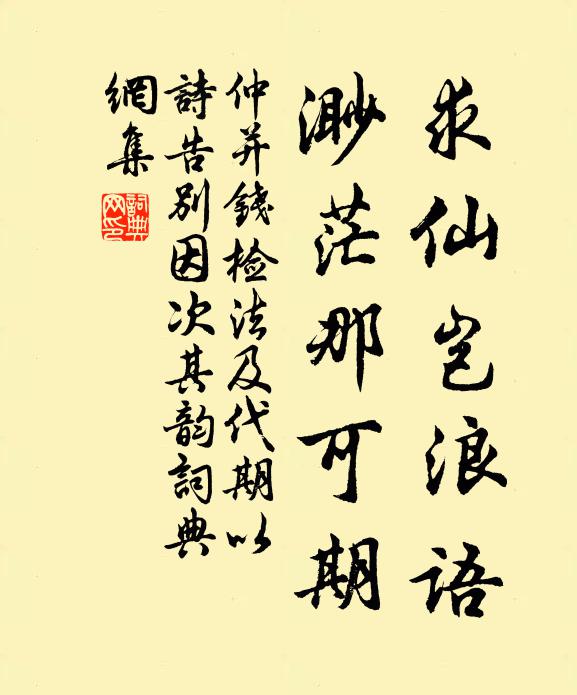 求仙岂浪語
渺茫那可期
仲并錢檢法及代期以
詩告别因次其韵詞典
網集
詞典
网印